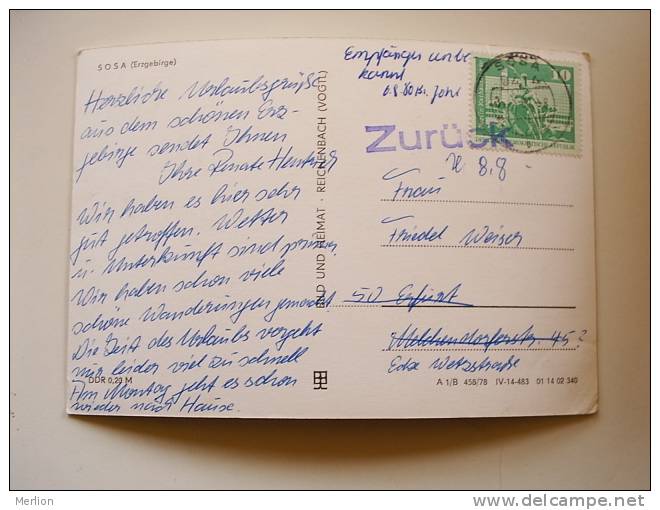 SOSA (Erzgebirge)
Herzliche Urlaubsgrüße
aus dem schönen Erz-
gebirge sendet Ihnen
Ihre Renate
Wir haben es hier sehr
gut getroffen. Wetter
u. Unterkunft sind prima.
Wir haben schon viele
schöne Wanderungen gemacht
Die Zeit des Urlaubs vergeht
nur leider viel zu schnell
Am Montag geht es schon
wieder nach Hause.
DDR 0,20 M
BILD UND HEIMAT · REICHENBACH (VOGTL)
Empfänger unbe
kannt
SOSA
10
Zurück
8,8
Frau
Friedel Weiser
50 Erfurt
45?
Ecke
A 1/B 458/78 IV-14-483 01 14 02 340
Merlion
www.delcampe.net